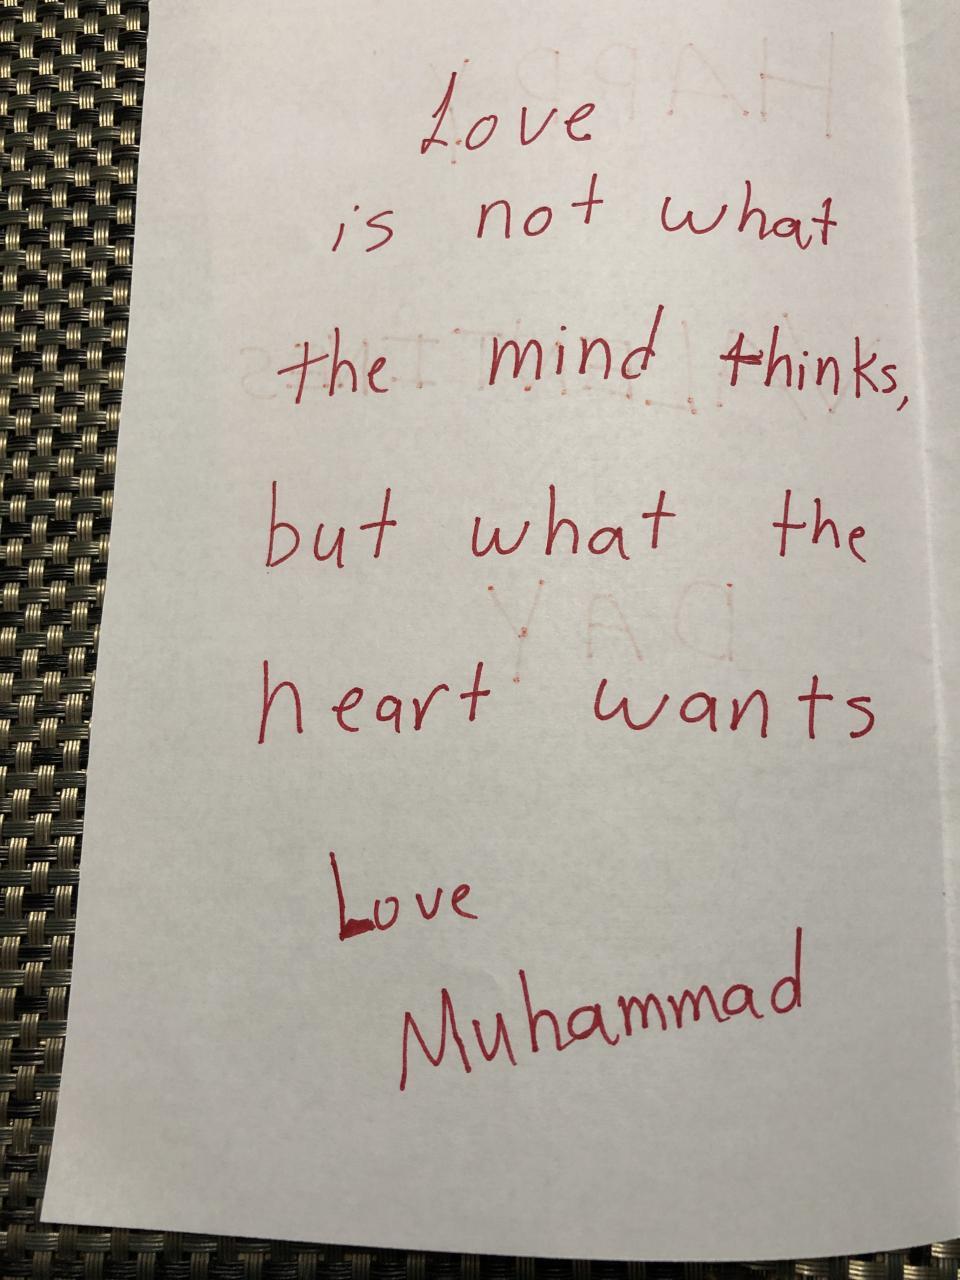 Love
is not what
the mind thinks,
but what the
heart wants
Love
Muhammad
HAPPY
VALENTINES
DAY